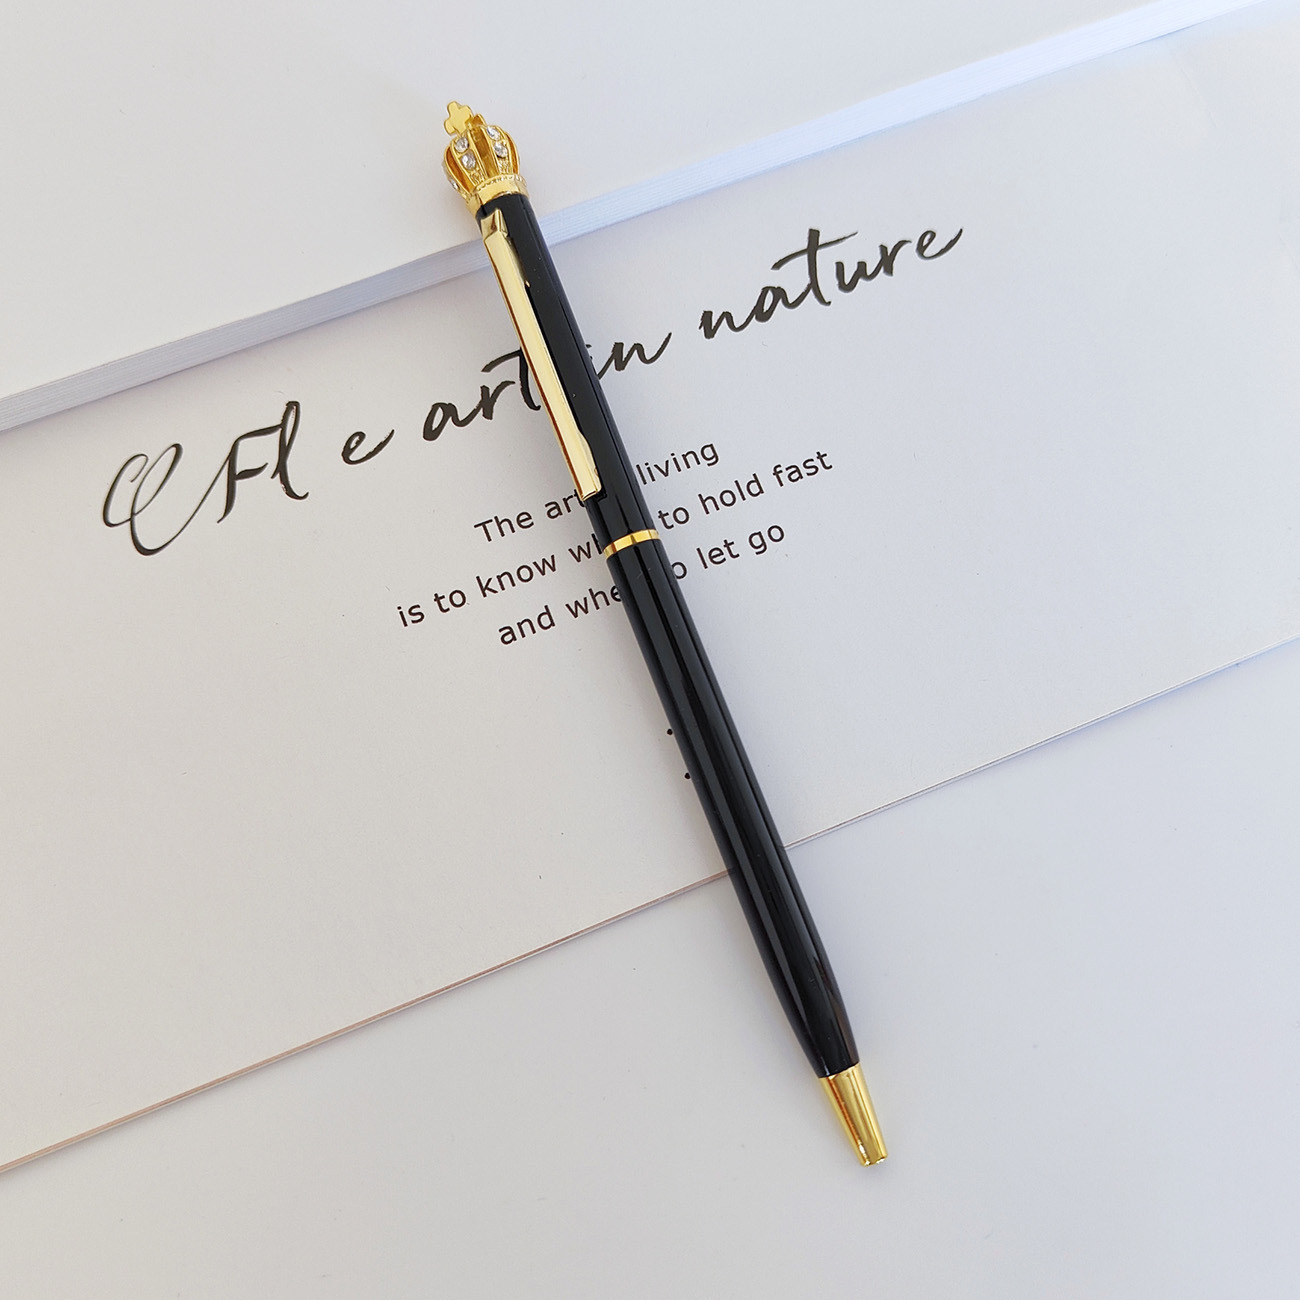 Fl e art in nature
The art living
is to know to hold fast
and let go